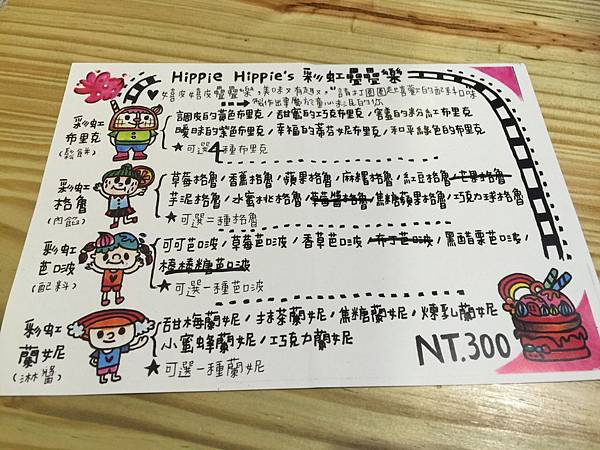 Hippie Hippie's 彩虹疊疊樂
嬉皮嬉皮疊疊樂,美味又有趣,"請打圈圈起喜歡的配料口味
製作出專屬於童心彩虹的你
彩虹
布里克
(鬆餅)
調皮的黃色布里克/甜蜜的巧克布里克/害羞的粉紅布里克
曖昧的紫色布里克/幸福的蒂芬妮布里克/和平綠色的布里克
★可選4種布里克
彩虹
格魯
(內餡)
草莓格魯/香蕉格魯/蘋果格魯/麻糬格魯/紅豆格魯/芒果格魯
芋泥格魯/小蜜桃格魯/草莓醬格魯/焦糖蘋果格魯/巧克力球格魯
★可選二種格魯
彩虹
芭啵
(配料)
可可芭啵/草莓芭啵/香草芭啵/布丁芭啵/黑醋栗芭啵/
棒棒糖芭啵
★可選一種芭啵
彩虹
蘭妮
(淋醬)
甜梅蘭妮/抹茶蘭妮/焦糖蘭妮/煉乳蘭妮/
小蜜蜂蘭妮/巧克力蘭妮
★可選一種蘭妮
NT.300